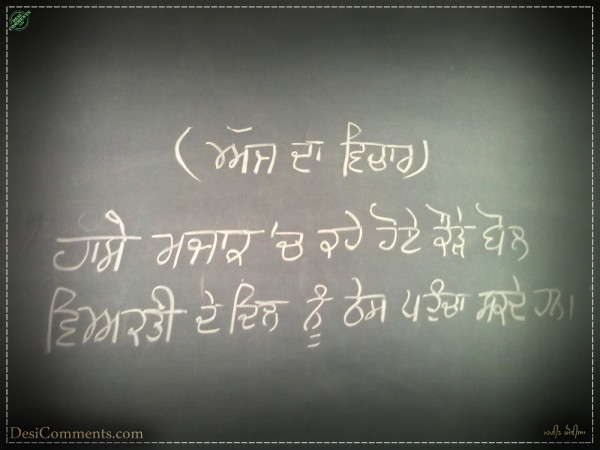 (ਅੱਜ ਦਾ ਵਿਚਾਰ)
ਹਾਸੇ ਮਜਾਕ 'ਚ ਕਹੇ ਹੋਏ ਕੌੜੇ ਬੋਲ
ਵਿਅਕਤੀ ਦੇ ਦਿਲ ਨੂੰ ਠੇਸ ਪਹੁੰਚਾ ਸਕਦੇ ਹਨ।
DesiComments.com